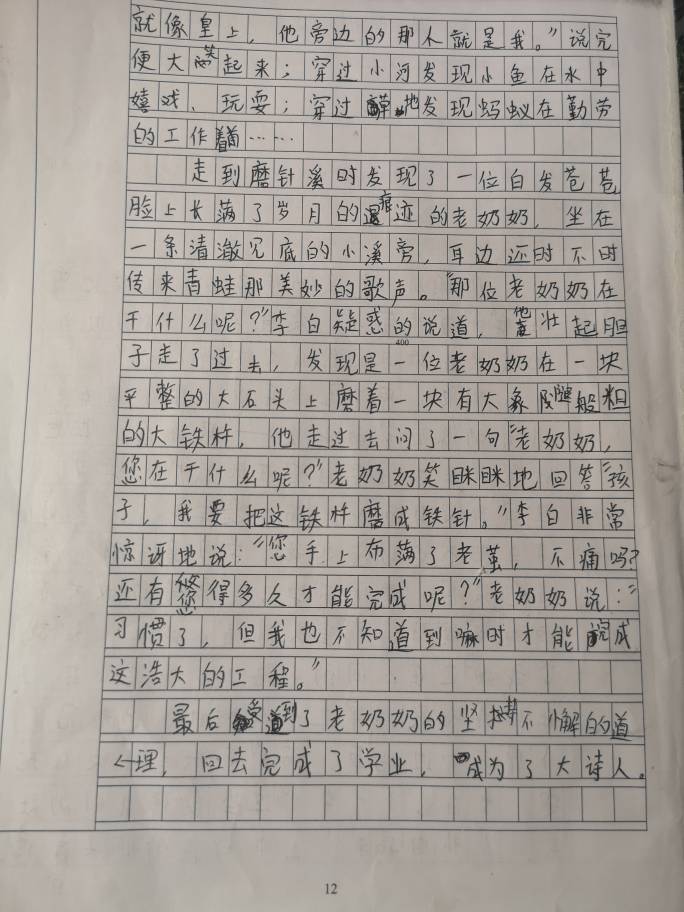 就像皇上，他旁边的那个就是我。”说完
便大笑起来；穿过小河发现小鱼在水中
嬉戏、玩耍；穿过草地发现蚂蚁在勤劳
的工作着……
走到磨针溪时发现了一位白发苍苍
脸上长满了岁月的痕迹的老奶奶，坐在
一条清澈见底的小溪旁，耳边还时不时
传来青蛙那美妙的歌声。“那位老奶奶在
干什么呢？”李白疑惑的说道，他壮起胆
400
子走了过去，发现是一位老奶奶在一块
平整的大石头上磨着一块有大象腿般粗
的大铁杵，他走过去问了一句“老奶奶，
您在干什么呢？”老奶奶笑眯眯地回答“孩
子，我要把这铁杵磨成铁针。”李白非常
惊讶地说：“您手上布满了老茧，不痛吗？
还有您得多久才能完成呢？”老奶奶说：“
习惯了，但我也不知道到嘛时才能完成
这浩大的工程。”
最后受到了老奶奶的坚持不懈的道
理，回去完成了学业，成为了大诗人。
12